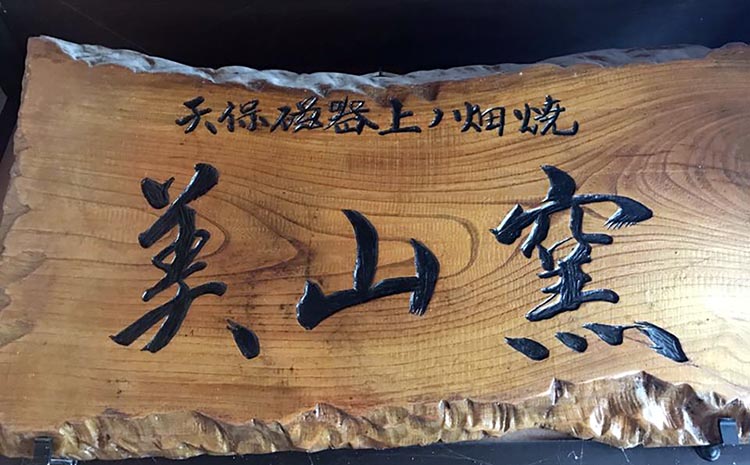 天保磁器上ノ畑焼
美山窯